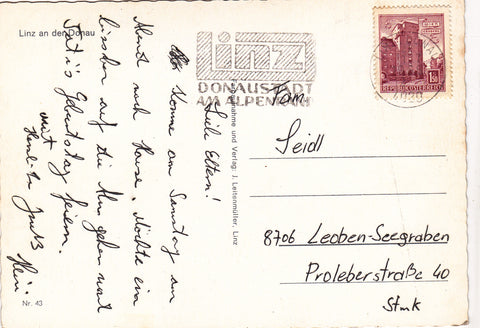 Linz an der Donau
Linz
DONAUSTADT
AM ALPENRAND
REPUBLIK ÖSTERREICH
1.50
4020
Liebe Eltern!
Komme am Samstag am
Abend nach Hause. Möchte ein
bisschen auf die Alm gehen weil
Geburtstag feiern.
mit
Gruß
Heli
Fam.
Seidl
8706 Leoben-Seegraben
Proleberstraße 40
Stmk
Aufnahme und Verlag: J. Leitenmüller, Linz
Nr. 43